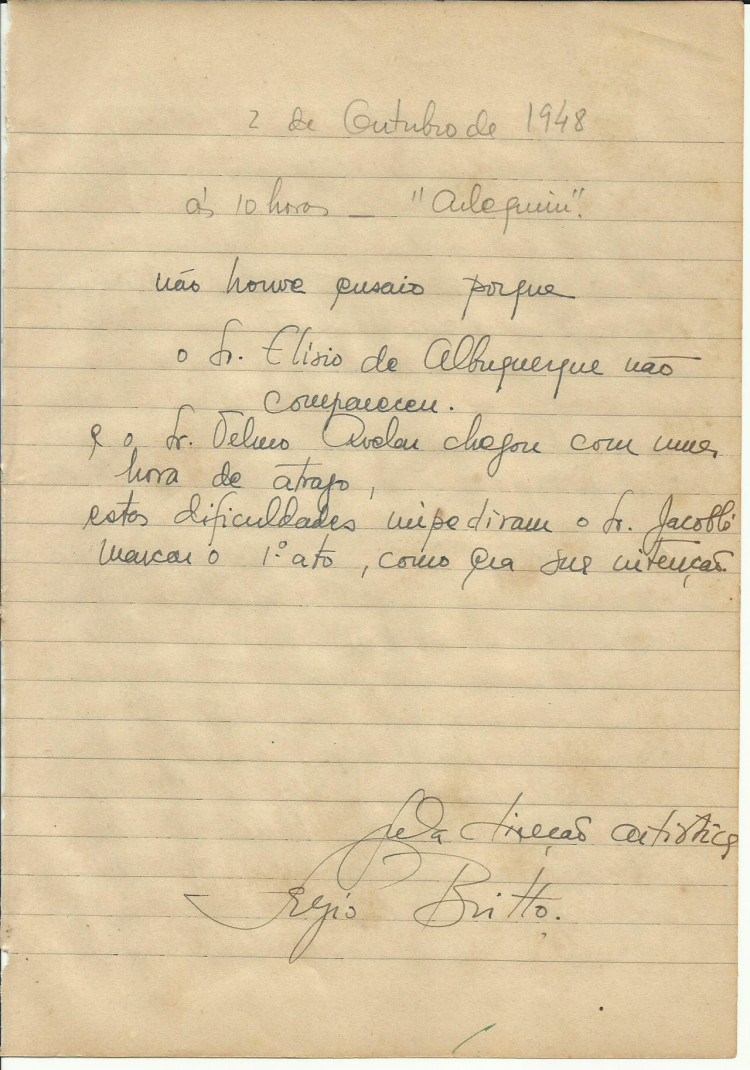 2 de Outubro de 1948
ás 10 horas — "Arlequim".
não houve ensaio porque
o Sr. Elísio de Albuquerque não
compareceu.
e o Sr. Telmo Avelar chegou com uma
hora de atraso,
estas dificuldades impediram o Sr. Jacobbi
marcar o 1º ato, como era sua intenção.
Pela direcção artistica
Sergio Britto.